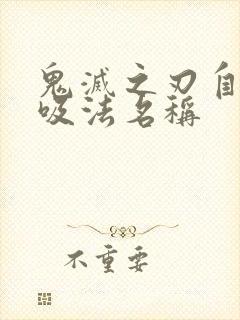 鬼滅之刃自
吸法名稱
不重要